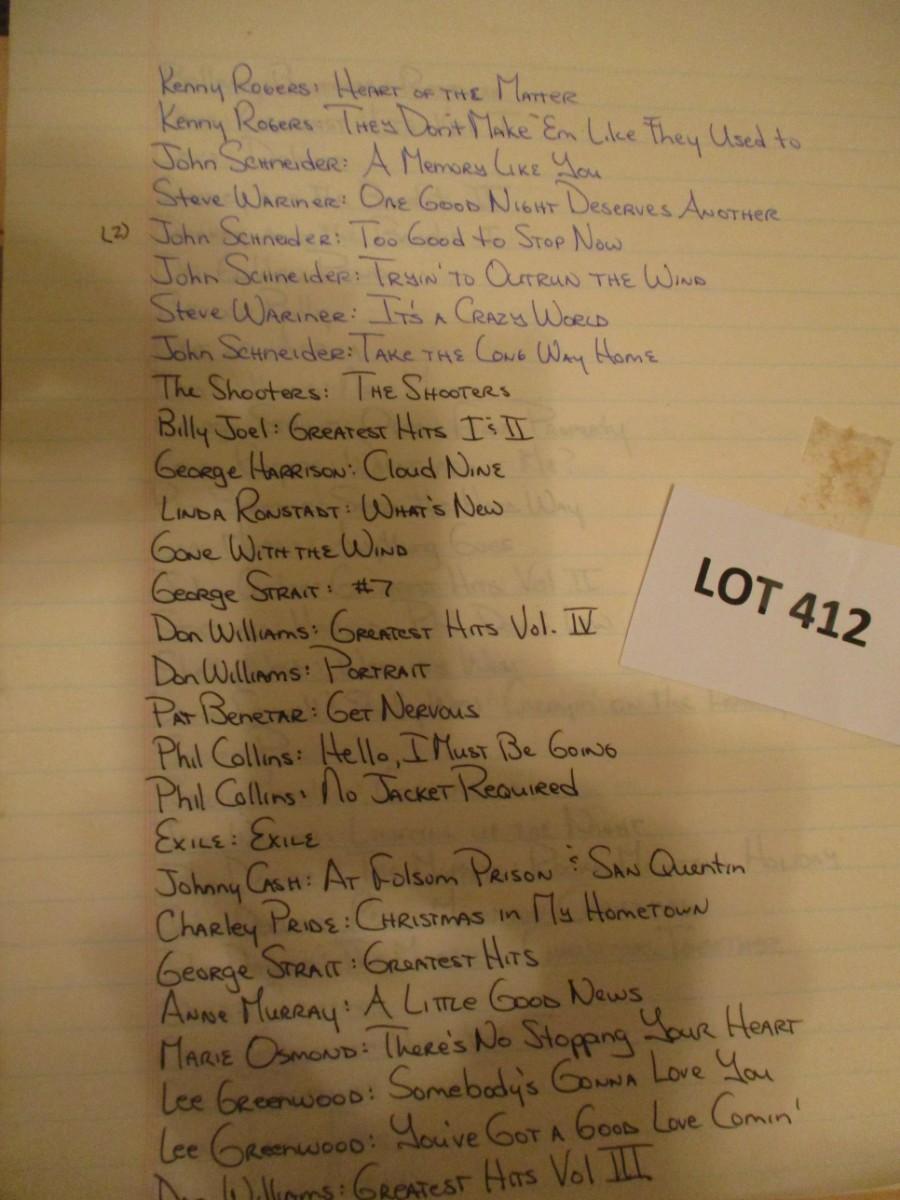 Kenny Rogers: Heart of the Matter
Kenny Rogers: They Don't Make 'Em Like They Used to
John Schneider: A Memory Like You
Steve Wariner: One Good Night Deserves Another
(2) John Schneider: Too Good to Stop Now
John Schneider: Tryin' to Outrun the Wind
Steve Wariner: It's a Crazy World
John Schneider: Take the Long Way Home
The Shooters: The Shooters
Billy Joel: Greatest Hits I & II
George Harrison: Cloud Nine
Linda Ronstadt: What's New
Gone With the Wind
George Strait: #7
Don Williams: Greatest Hits Vol. IV
Don Williams: Portrait
Pat Benetar: Get Nervous
Phil Collins: Hello, I Must Be Going
Phil Collins: No Jacket Required
Exile: Exile
Johnny Cash: At Folsom Prison & San Quentin
Charley Pride: Christmas in My Hometown
George Strait: Greatest Hits
Anne Murray: A Little Good News
Marie Osmond: There's No Stopping Your Heart
Lee Greenwood: Somebody's Gonna Love You
Lee Greenwood: You've Got a Good Love Comin'
Don Williams: Greatest Hits Vol III
LOT 412